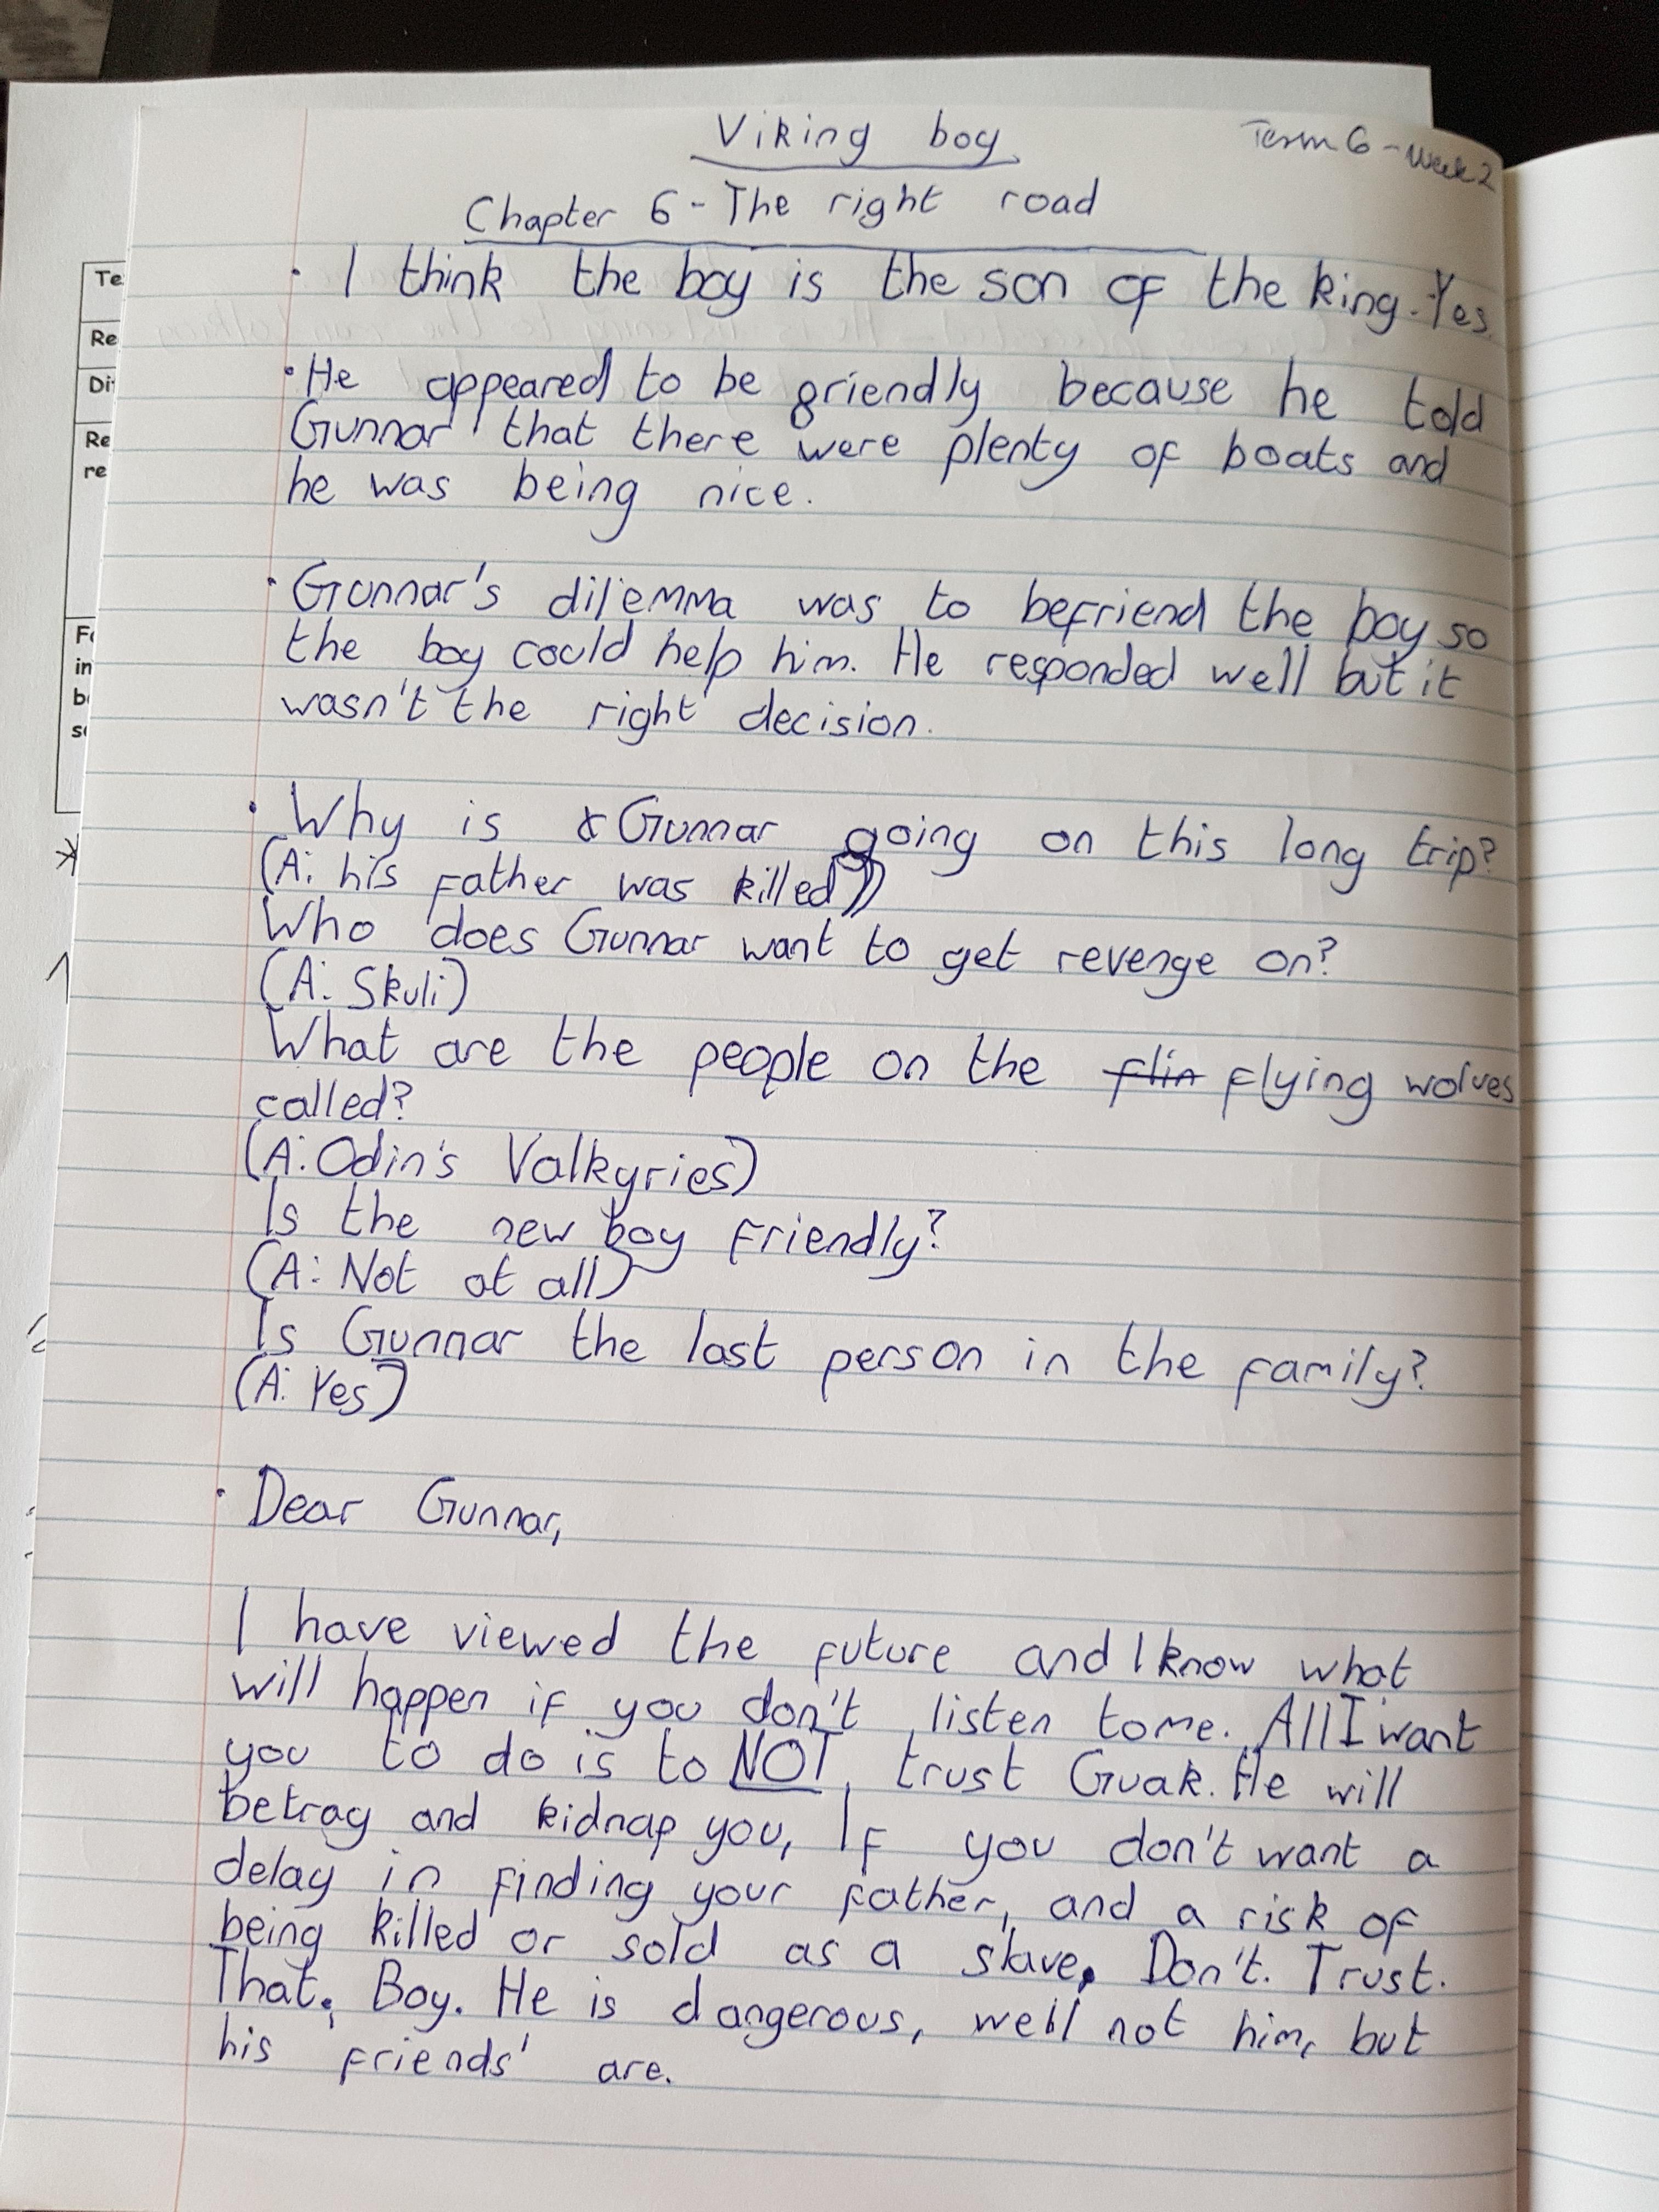 Viking boy
Term 6 - Week 2
Chapter 6 - The right road
• I think the boy is the son of the king. Yes.
• He appeared to be griendly because he told
Gunnar that there were plenty of boats and
he was being nice.
• Gunnar's dilemma was to befriend the boy so
the boy could help him. He responded well but it
wasn't the right decision.
• Why is Gunnar going on this long trip?
(A: his father was killed)
Who does Gunnar want to get revenge on?
(A: Skuli)
What are the people on the flin flying wolves
called?
(A: Odin's Valkyries)
Is the new boy friendly?
(A: Not at all)
Is Gunnar the last person in the family?
(A: Yes)
• Dear Gunnar,
I have viewed the future and I know what
will happen if you don't listen to me. All I want
you to do is to NOT trust Guak. He will
betray and kidnap you, If you don't want a
delay in finding your father, and a risk of
being killed or sold as a slave. Don't. Trust.
That. Boy. He is dangerous, well not him, but
his friends' are.
Te
Re
Di
Re
re
in